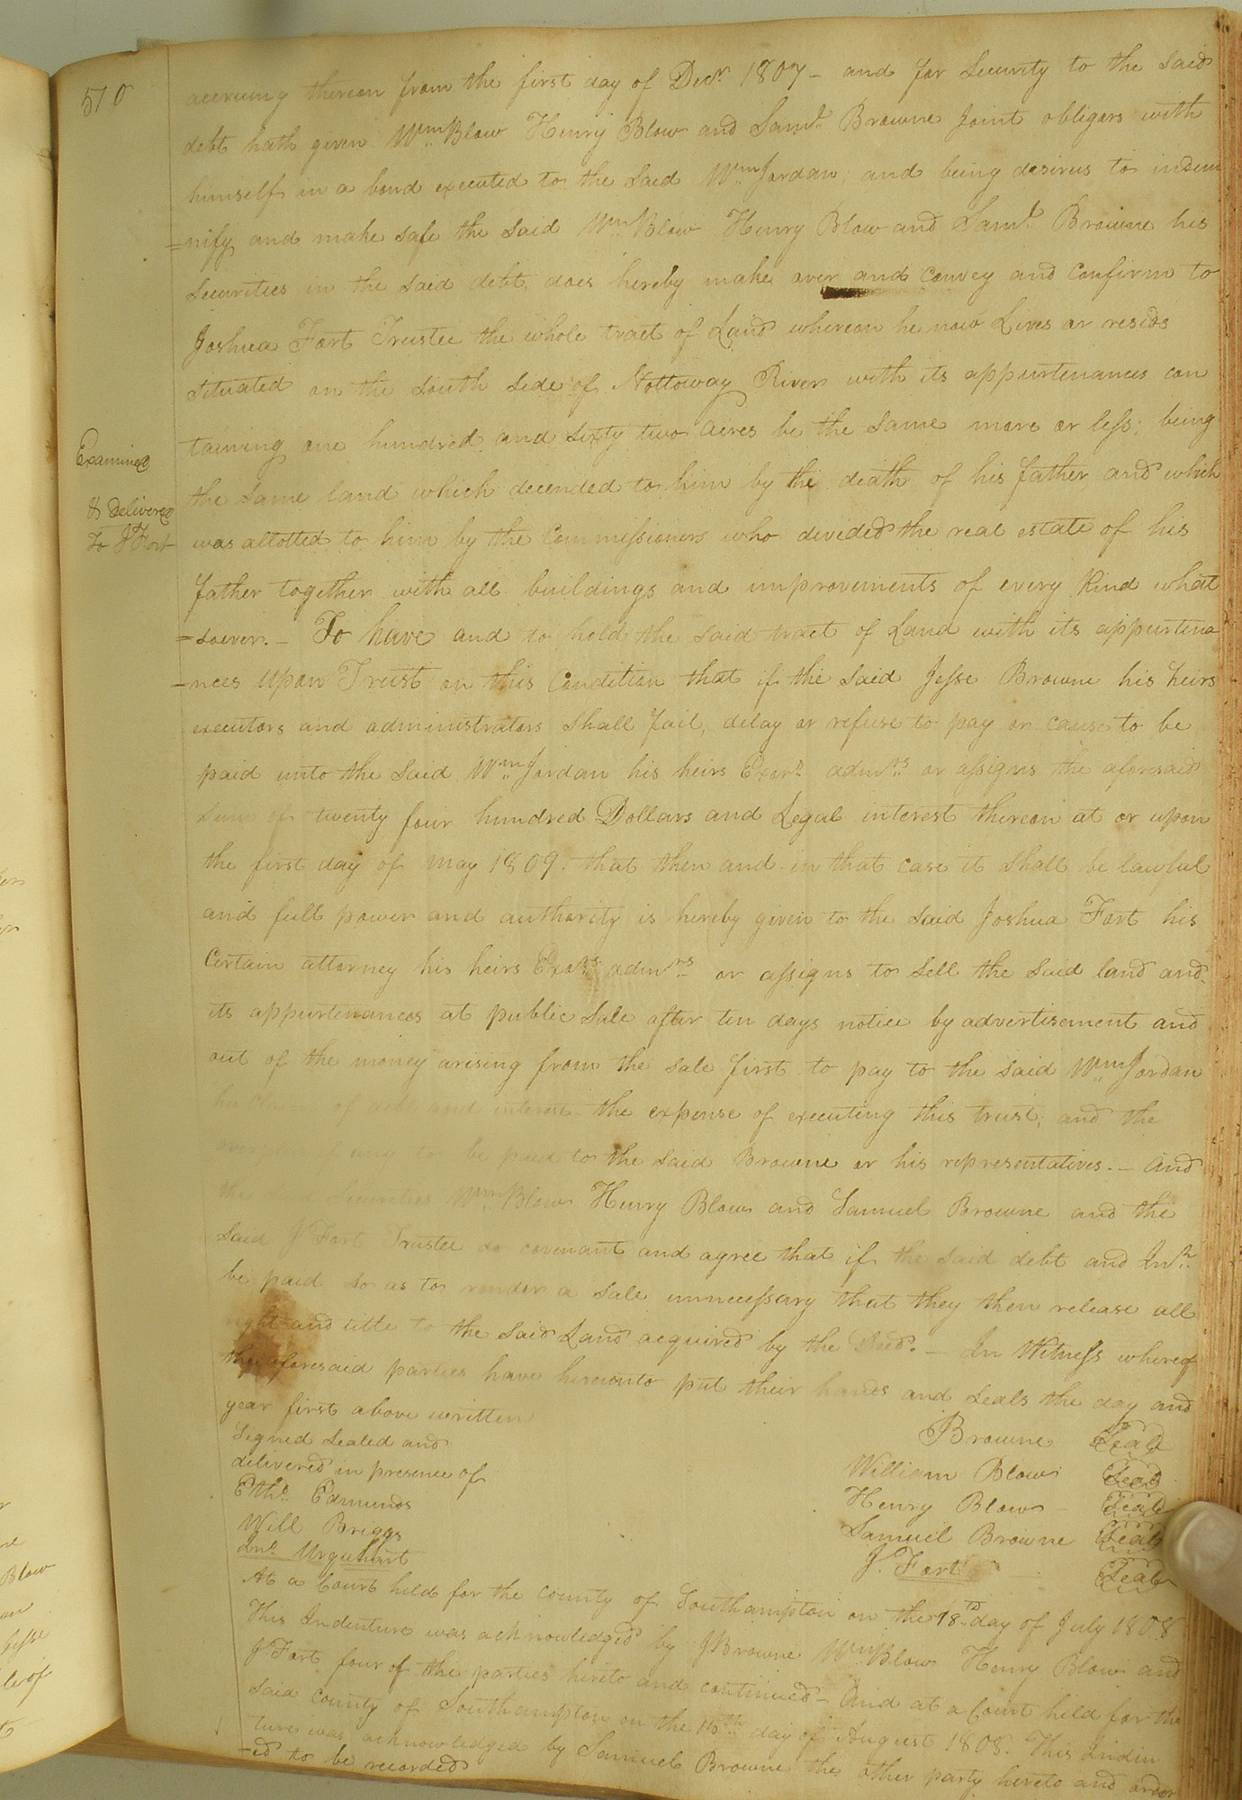 510
accruing thereon from the first day of Decr. 1807 - and for Security to the said
debt hath given Wm. Blow Henry Blow and Saml. Browne joint obligers with
himself in a bond executed to the said Wm. Jordan; and being desirus to indem
=nify and make safe the said Wm. Blow Henry Blow and Saml. Browne his
Securities in the said debt, does hereby make over and convey and confirm to
Joshua Fort Trustee the whole tract of Land whereon he now Lives or resids
situated on the south side of Nottoway River with its appurtenances con
taining one hundred and sixty two acres be the same more or less; being
the same land which decended to him by the death of his father and which
was allotted to him by the Commissioners who devided the real estate of his
father together with all buildings and improvements of every kind what
=soever. - To have and to hold the said tract of Land with its appurtena
=nces upon Trust on this Condition that if the said Jesse Browne his heirs
executors and administrators shall fail, delay or refuse to pay or cause to be
paid unto the said Wm. Jordan his heirs Exors. admrs. or assigns the aforesaid
Sum of twenty four hundred Dollars and Legal interest thereon at or upon
the first day of May 1809. that then and in that case it shall be lawful
and full power and authority is hereby given to the said Joshua Fort his
Certain attorney his heirs Exors. admrs. or assigns to sell the said land and
its appurtenances at public sale after ten days notice by advertisement and
out of the money arising from the sale first to pay to the said Wm. Jordan
his Claim of debt and interest the expense of executing this trust, and the
overplus if any to be paid to the said Browne or his representatives. - And
the Securities Wm. Blow Henry Blow and Samuel Browne and the
said J Fort Trustee do covenant and agree that if the said debt and Int.
be paid so as to render a sale unnecessary that they then release all
right and title to the said Land acquired by the Deed. - In Witness whereof
the aforesaid parties have hereonto put their hands and seals the day and
year first above written
Examined
& delivered
to J Fort
Signed sealed and
delivered in presence of
Ethd. Edmunds
Will Briggs
Jno. Urquhart
Browne Seal
William Blow Seal
Henry Blow - Seal
Samuel Browne Seal
J. Fort - Seal
At a Court held for the county of Southampton on the 18th day of July 1808
This Indenture was acknowledged by J Browne Wm. Blow Henry Blow and
J Fort four of the parties hereto and continued - And at a Court held for the
said county of Southampton on the 15th day of August 1808. This Inden
ture was acknowledged by Samuel Browne the other party hereto and order
=ed to be recorded
Blow